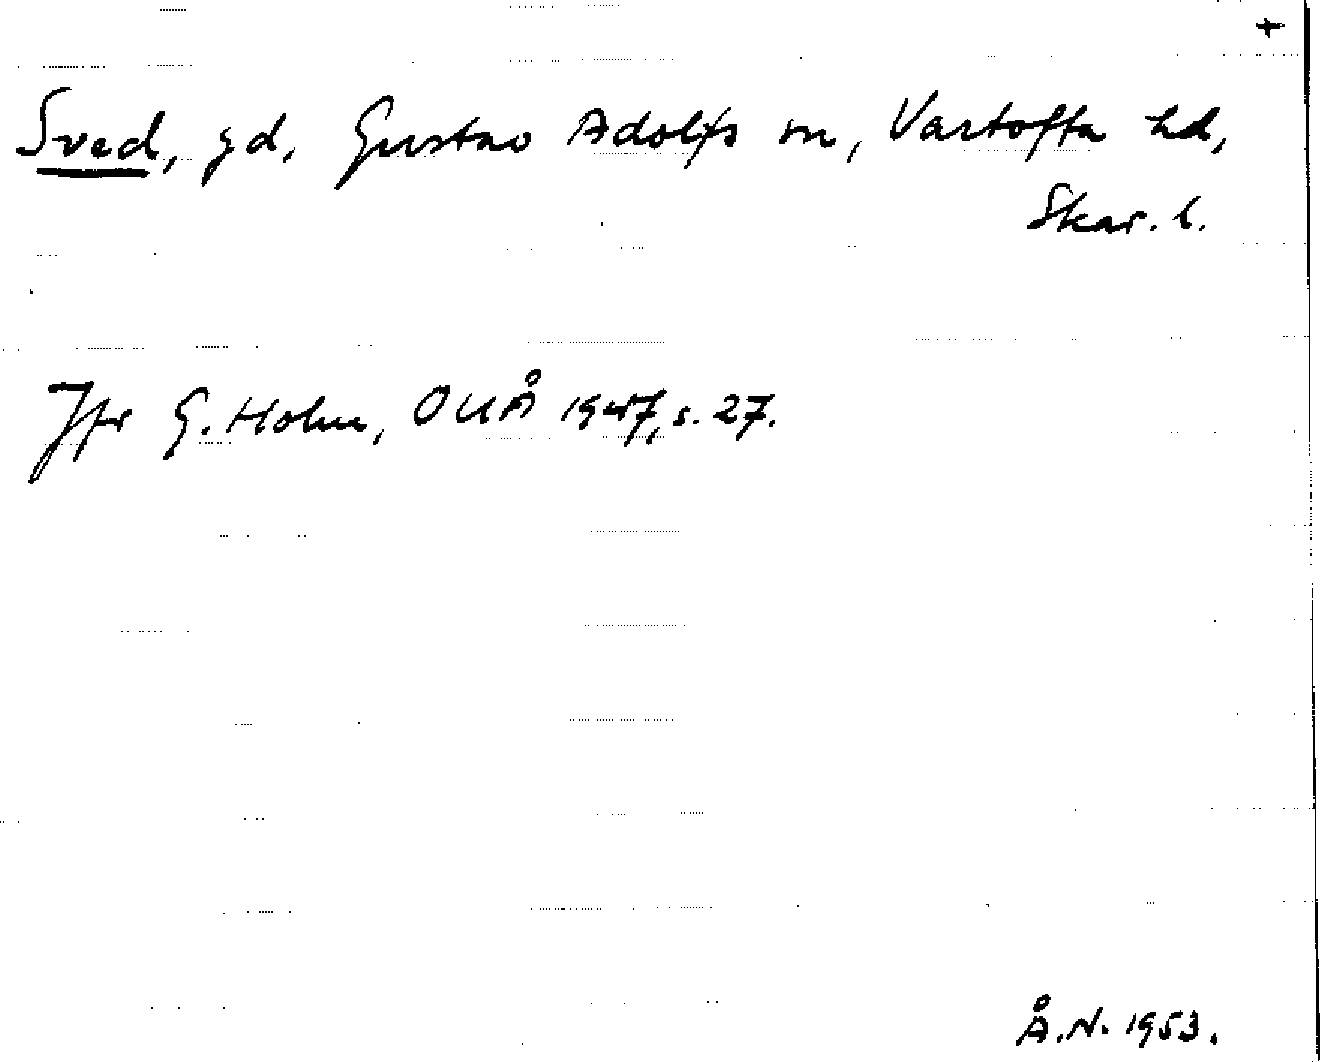 +
Sved, gd, Gustav Adolfs sn, Vartofta hd,
Skar. l.
Jfr G. Holm, OUÅ 1947, s. 27.
Å.N. 1953.